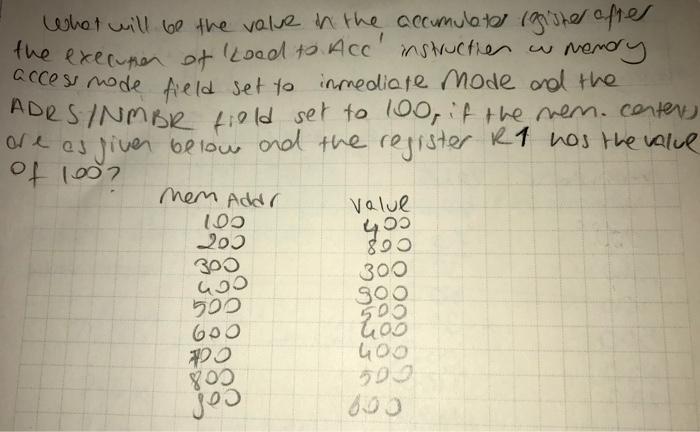 What will be the value in the accumulator register after
the execution of 'Load to Acc' instruction w memory
access mode field set to immediate Mode and the
ADRS/NMBR field set to 100, if the mem. contents
are as given below and the register R1 has the value
of 100?
Mem Addr value
100 400
200 800
300 300
400 900
500 500
600 400
700 400
800 500
900 600